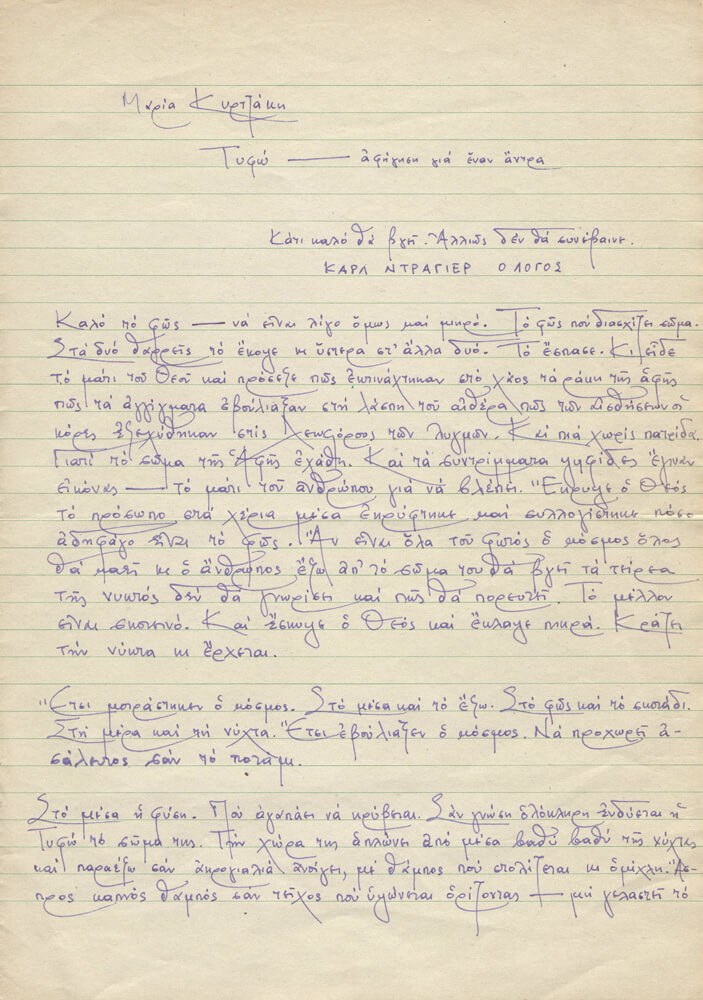 Μαρία Κυρτζάκη
Τυφώ — ἀφήγηση γιά ἕναν ἄντρα
Κάτι καλό θά βγεῖ. Ἀλλιῶς δέν θά συνέβαινε.
ΚΑΡΛ ΝΤΡΑΓΙΕΡ Ο ΛΟΓΟΣ
Καλό τό φῶς — νά εἶναι λίγο ὅμως καί μικρό. Τό φῶς πού διασχίζει σῶμα.
Στά δυό θαρρεῖς τό ἔκοψε κι ὕστερα στ' ἄλλα δυό. Τό ἔσπασε. Κι εἶδε
τό μάτι τοῦ Θεοῦ καί πρόσεξε πῶς ἐκτινάχτηκαν στό χάος τά ράκη τῆς ἁφῆς
πῶς τά ἀγγίγματα ἐβούλιαξαν στή λάσπη τοῦ αἰθέρα πῶς τῶν αἰσθήσεων οἱ
κόρες ἐξεχύθηκαν στίς λεωφόρους τῶν λυγμῶν. Καί πιά χωρίς πατρίδα.
Γιατί τό σῶμα τῆς Ἁφῆς ἐχάθη. Καί τά συντρίμματα ψηφίδες ἔγιναν
εἰκόνας — τό μάτι τοῦ ἀνθρώπου γιά νά βλέπει. Ἔκρυψε ὁ Θεός
τό πρόσωπο στά χέρια μέσα ἐκρύφτηκε καί συλλογίστηκε πόσο
ἀδηφάγο εἶναι τό φῶς. Ἄν εἶναι ὅλα τοῦ φωτός ὁ κόσμος ὅλος
θά καεῖ κι ὁ ἄνθρωπος ἔξω ἀπ' τό σῶμα του θά βγεῖ τά τείρεα
τῆς νυκτός δέν θά γνωρίσει καί πῆς θά πορευτεῖ. Τό μέλλον
εἶναι σκοτεινό. Καί ἔσκυψε ὁ Θεός καί ἔκλαψε πικρά. Κράζει
τήν νύκτα κι ἔρχεται.
Ἔτσι μοιράστηκεν ὁ κόσμος. Στό μέσα καί τό ἔξω. Στό φῶς καί τό σκοτάδι.
Στή μέρα καί τή νύχτα. Ἔτσι ἐβούλιαξεν ὁ κόσμος. Νά προχωρεῖ ἀ-
σάλευτος σάν τό ποτάμι.
Στό μέσα ἡ φύση. Πού ἀγαπάει νά κρύβεται. Σάν γνώση ὁλόκληρη ἐνδύεται ἡ
Τυφώ τό σῶμα της. Τήν χώρα της ἁπλώνει ἀπό μέσα βαθύ βαθύ τῆς νύχτας
καί παραέξω σάν ἀκρογιαλιά ἀνοίγει, μέ θάμπος πού στολίζεται κι ὁμίχλη. Ἄσ-
προς καπνός θαμπός σάν τεῖχος πού ὑψώνεται ὁρίζοντας — μή γελαστεῖ τό